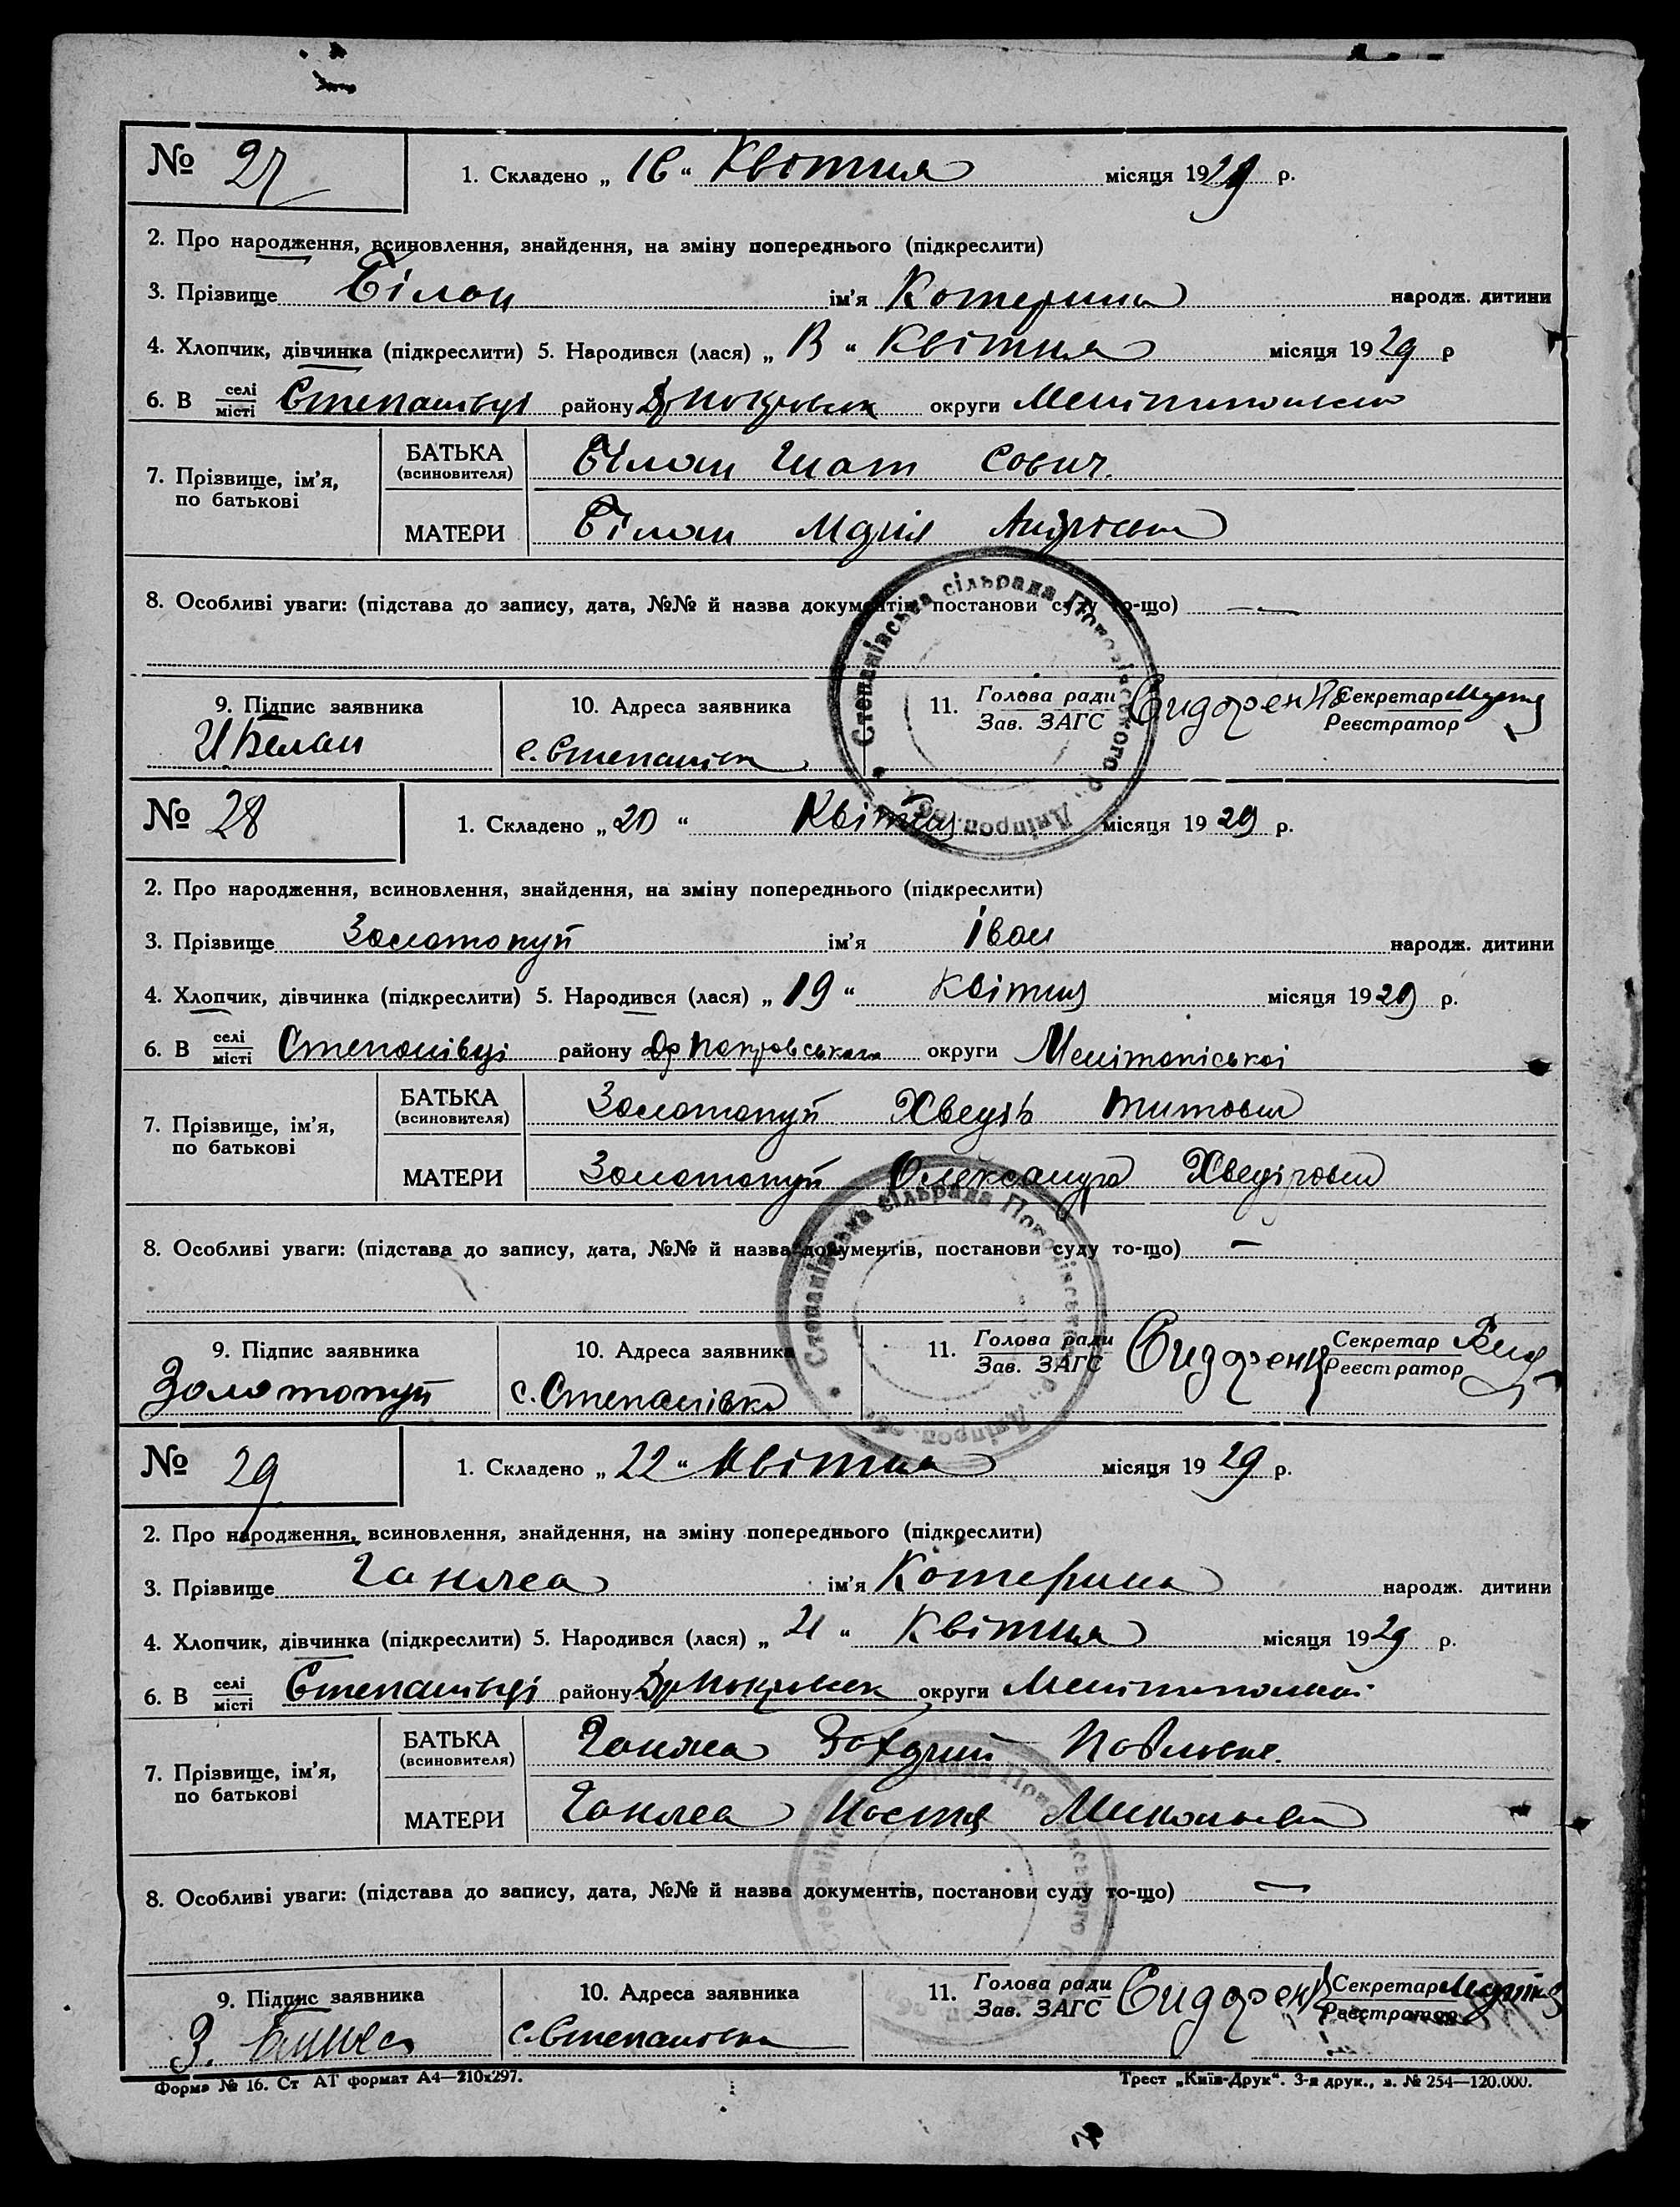 № 27
1. Складено „ 16 “ Квітня місяця 1929 р.
2. Про народження, всиновлення, знайдення, на зміну попереднього (підкреслити)
3. Прізвище Білан ім'я Катерина народж. дитини
4. Хлопчик, дівчинка (підкреслити) 5. Народився (лася) „ “ Квітня місяця 1929 р
6. В селі місті Степанівці району округи
7. Прізвище, ім'я, по батькові
БАТЬКА (всиновителя) Білан
МАТЕРИ Білан Марія
8. Особливі уваги: (підстава до запису, дата, №№ й назва документів, постанови суду то-що) —
9. Підпис заявника И. Белан
10. Адреса заявника с. Степанівка
11. Голова ради Зав. ЗАГС Сидоренко Секретар Реєстратор
Степанівська сільрада
№ 28
1. Складено „ 20 “ Квітня місяця 1929 р.
2. Про народження, всиновлення, знайдення, на зміну попереднього (підкреслити)
3. Прізвище Золотопуп ім'я Іван народж. дитини
4. Хлопчик, дівчинка (підкреслити) 5. Народився (лася) „ 19 “ Квітня місяця 1929 р.
6. В селі місті Степанівці району округи
7. Прізвище, ім'я, по батькові
БАТЬКА (всиновителя) Золотопуп Хведір Титович
МАТЕРИ Золотопуп Олександра
8. Особливі уваги: (підстава до запису, дата, №№ й назва документів, постанови суду то-що) —
9. Підпис заявника Золотопуп
10. Адреса заявника с. Степанівка
11. Голова ради Зав. ЗАГС Сидоренко Секретар Реєстратор
Степанівська сільрада
№ 29
1. Складено „ 22 “ Квітня місяця 1929 р.
2. Про народження, всиновлення, знайдення, на зміну попереднього (підкреслити)
3. Прізвище Ганжа ім'я Катерина народж. дитини
4. Хлопчик, дівчинка (підкреслити) 5. Народився (лася) „ 21 “ Квітня місяця 1929 р.
6. В селі місті Степанівці району округи
7. Прізвище, ім'я, по батькові
БАТЬКА (всиновителя) Ганжа
МАТЕРИ Ганжа Настя
8. Особливі уваги: (підстава до запису, дата, №№ й назва документів, постанови суду то-що) —
9. Підпис заявника
10. Адреса заявника с. Степанівка
11. Голова ради Зав. ЗАГС Сидоренко Секретар Реєстратор
Форма № 16. Ст АТ формат А4—210х297.
Трест „Київ-Друк“. 3-я друк., з. № 254—120.000.